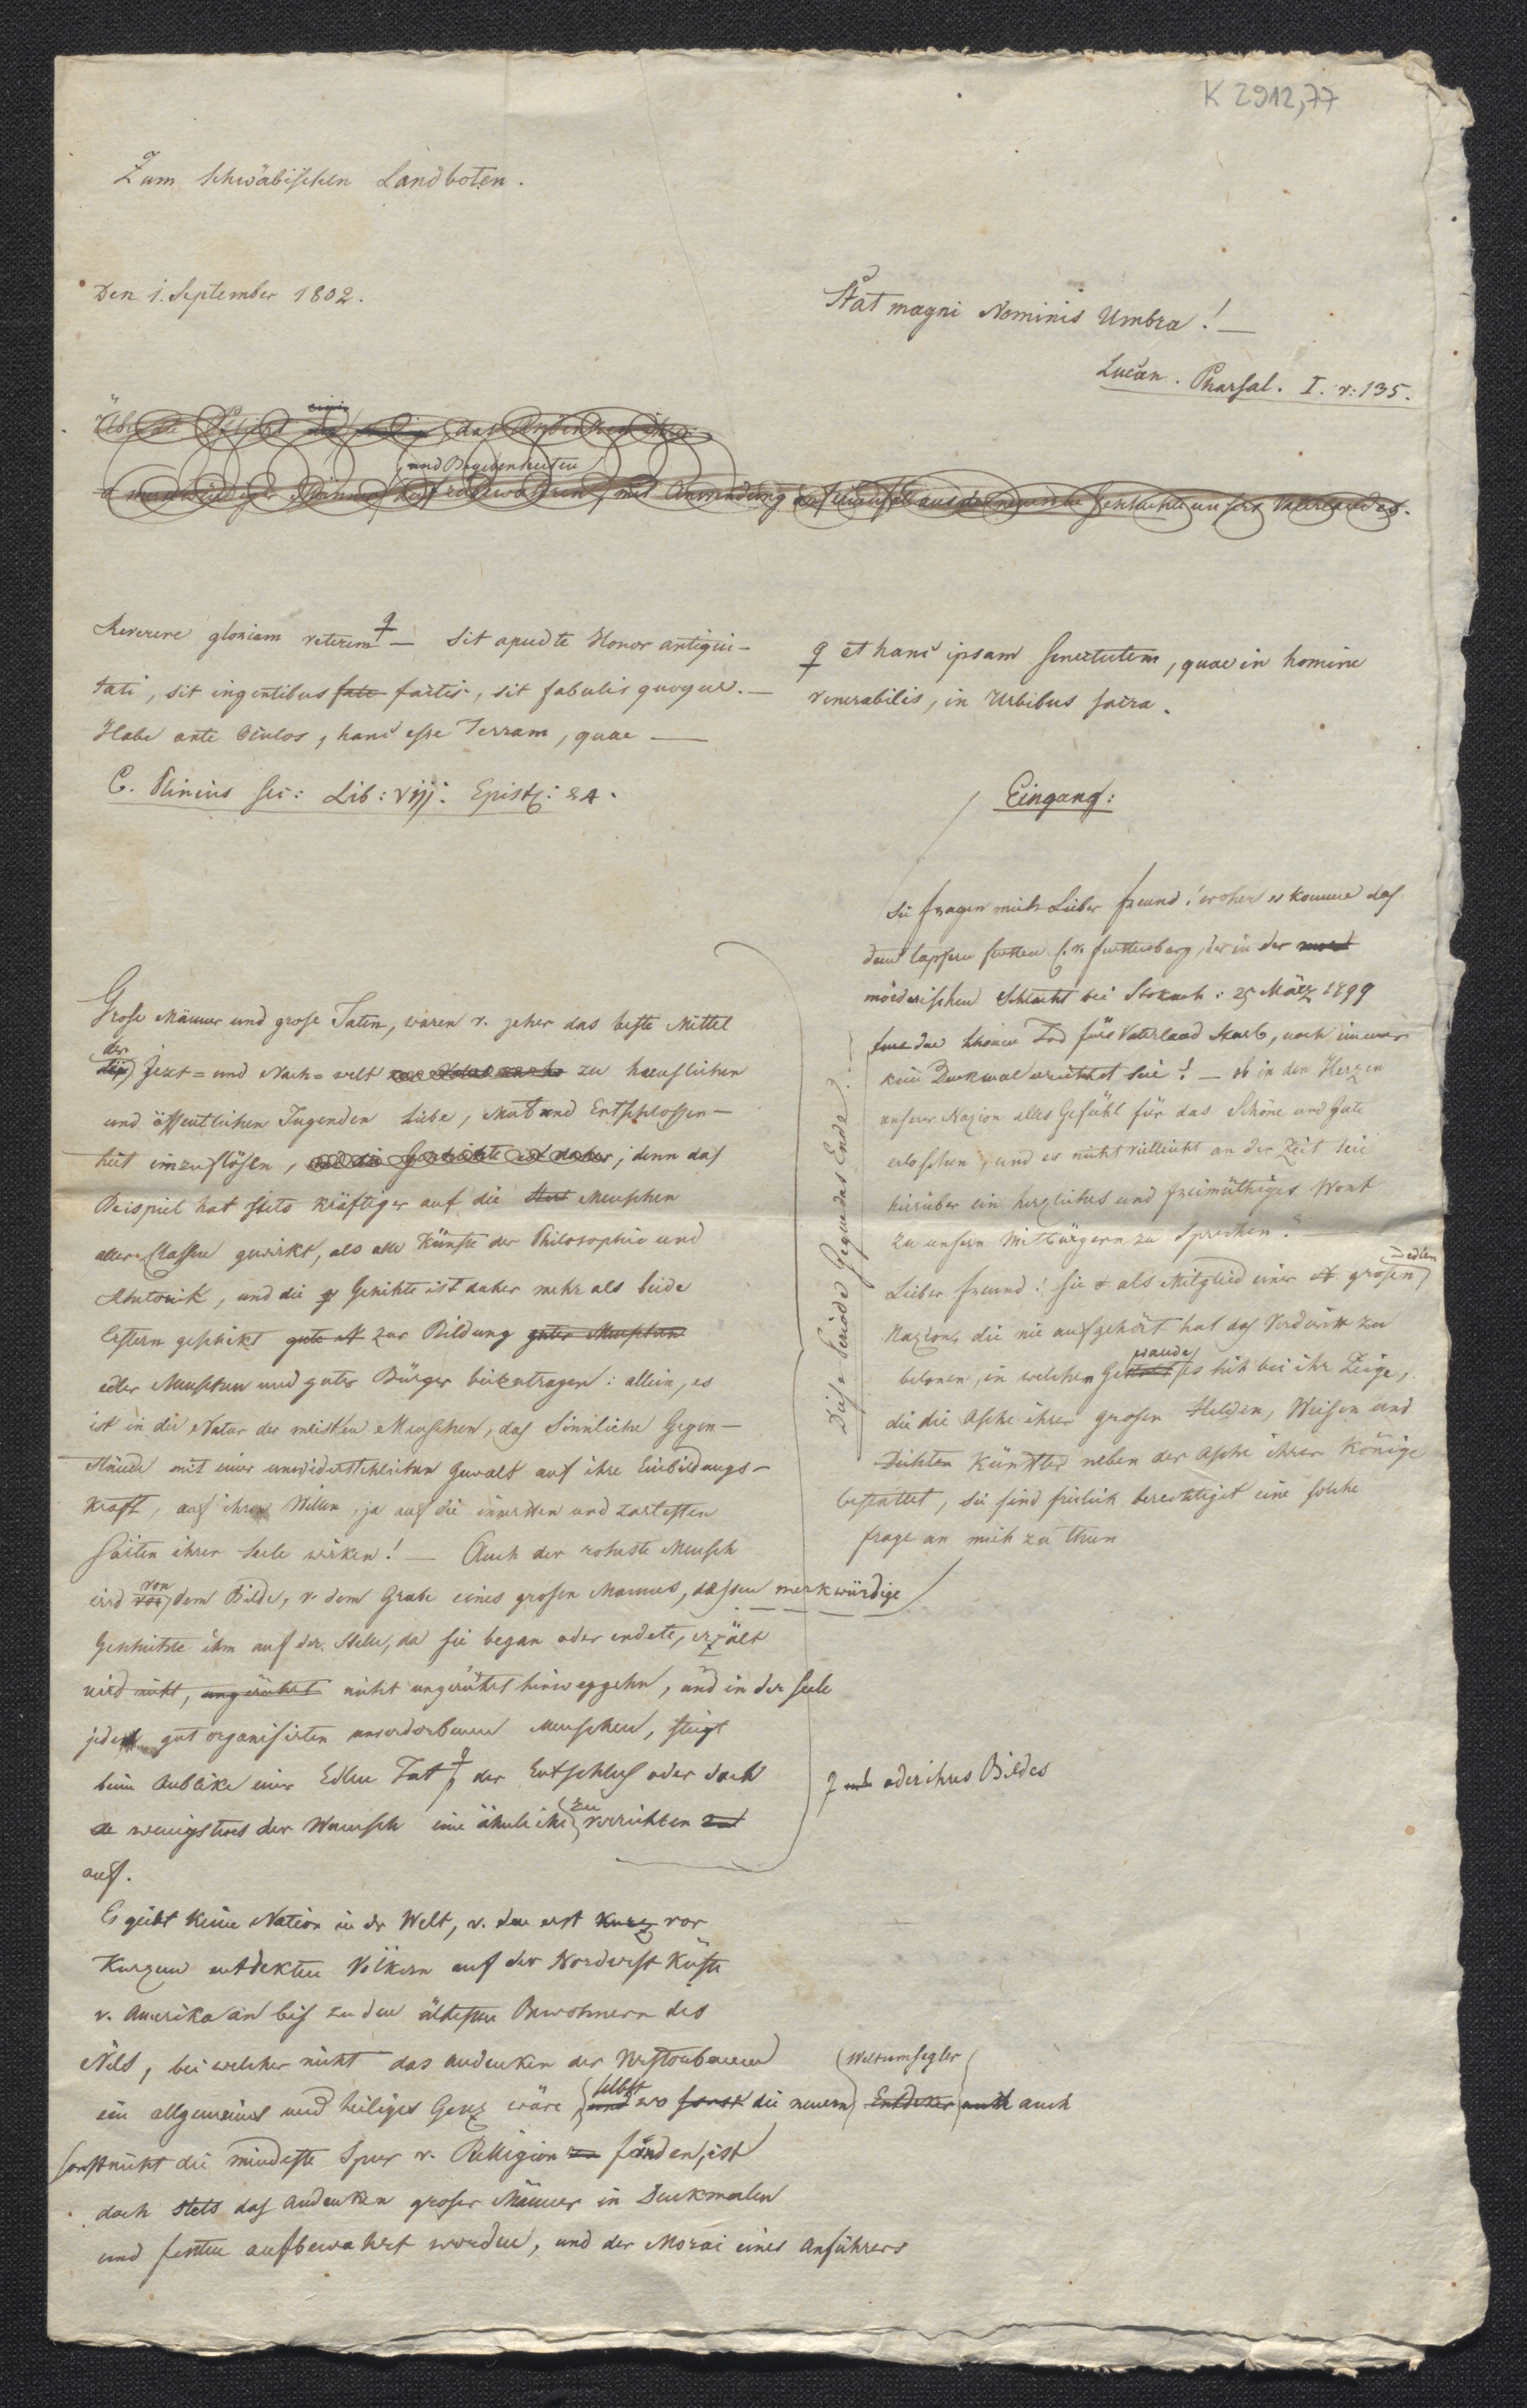 K 2912,77
Zum Schwäbischen Landboten.
Den 1. September 1802.
Stat magni Nominis Umbra! —
Lucan. Pharsal. I. v: 135.
und Begebenheiten
merkwürdiger Männer aufzubewahren, mit Anwendung auf aus der neuesten Geschichte unsers Vaterlandes.
Reverere gloriam veterem — Sit apud te Honor antiqui-
tati, sit ingentibus fate factis, sit fabulis quoque. —
Habe ante Oculos, hanc esse Terram, quae —
C. Plinius Sec: Lib: VIII. Epist: 24.
et hanc ipsam senectutem, quae in homine
venerabilis, in Urbibus sacra.
Eingang:
Sie fragen mich Lieber Freund! woher es komme das
dem tapfern Fürsten v. Fürstenberg, der in der mord
mörderischen Schlacht bei Stokach: 25 März 1799
den schönen Tod fürs Vaterland starb, noch immer
kein Denkmal errichtet sei? — ob in den Herzen
unserer Nazion alles Gefühl für das Schöne und Gute
erloschen, und es nicht villeicht an der Zeit seie
hierüber ein herzliches und freimüthiges Wort
zu unsern Mitbürgern zu sprechen? —
Lieber Freund! Sie als Mitglied einer grosen edlen
Nazion, die nie aufgehört hat das Verdienst zu
belonen, in welchem Gewande es sich bei ihr zeige,
die die Asche ihrer grosen Helden, Weisen und
Dichter Künstler neben der Asche ihrer Könige
bestattet, Sie sind freilich berechtiget eine solche
Frage an mich zu thun
Diese Periode gegen das Ende.
Grose Männer und grose Taten, waren v. jeher das beste Mittel
der Jezt- und Nach-welt zu häuslichen
und öffentlichen Tugenden Liebe, Mut und Entschlossen-
heit einzuflösen, und die Geschichte ist daher; denn das
Beispiel hat stets kräftiger auf die Menschen
aller Classen gewirkt, als alle Künste der Philosophie und
Rhetorik, und die Geschichte ist daher mehr als beide
Erstern geschikt gute zur Bildung guter Menschen
edler Menschen und guter Bürger beizutragen: allein, es
ist in der Natur der meisten Menschen, das Sinnliche Gegen-
stände mit einer unwiderstehlichen Gewalt auf ihre Einbildungs-
kraft, auf ihren Willen, ja auf die innersten und zartesten
Saiten ihrer Seele wirken! — Auch der roheste Mensch
wird von dem Bilde, v. dem Grabe eines grosen Mannes, dessen merkwürdige
Geschichte ihm auf der Stelle, da sie began oder endete, erzält
wird nicht, ungerührt nicht ungerührt hinweggehn, und in der Seele
jedes gut organisirten unverdorbenen Menschen, steigt
beim Anblike einer Edlen Tat der Entschlus oder doch
wenigstens der Wunsch eine ähnliche zu verrichten
auf.
oder ihres Bildes
Es geibt keine Nation in der Welt, v. den erst kurz vor
Kurzem entdekten Völkern auf der Nordwest Küste
v. Amerika an bis zu den ältesten Bewohnern des
Nils, bei welcher nicht das Andenken der Verstorbenen
ein allgemeines und heiliges Gesez wäre, selbst wo sonst die neuern Entdeker Weltumsegler auch auch
sonst nicht die mindeste Spur v. Religion finden, ist
doch stets das Andenken groser Männer in Denkmalen
und Festen aufbewahrt worden, und der Morai eines Anführers